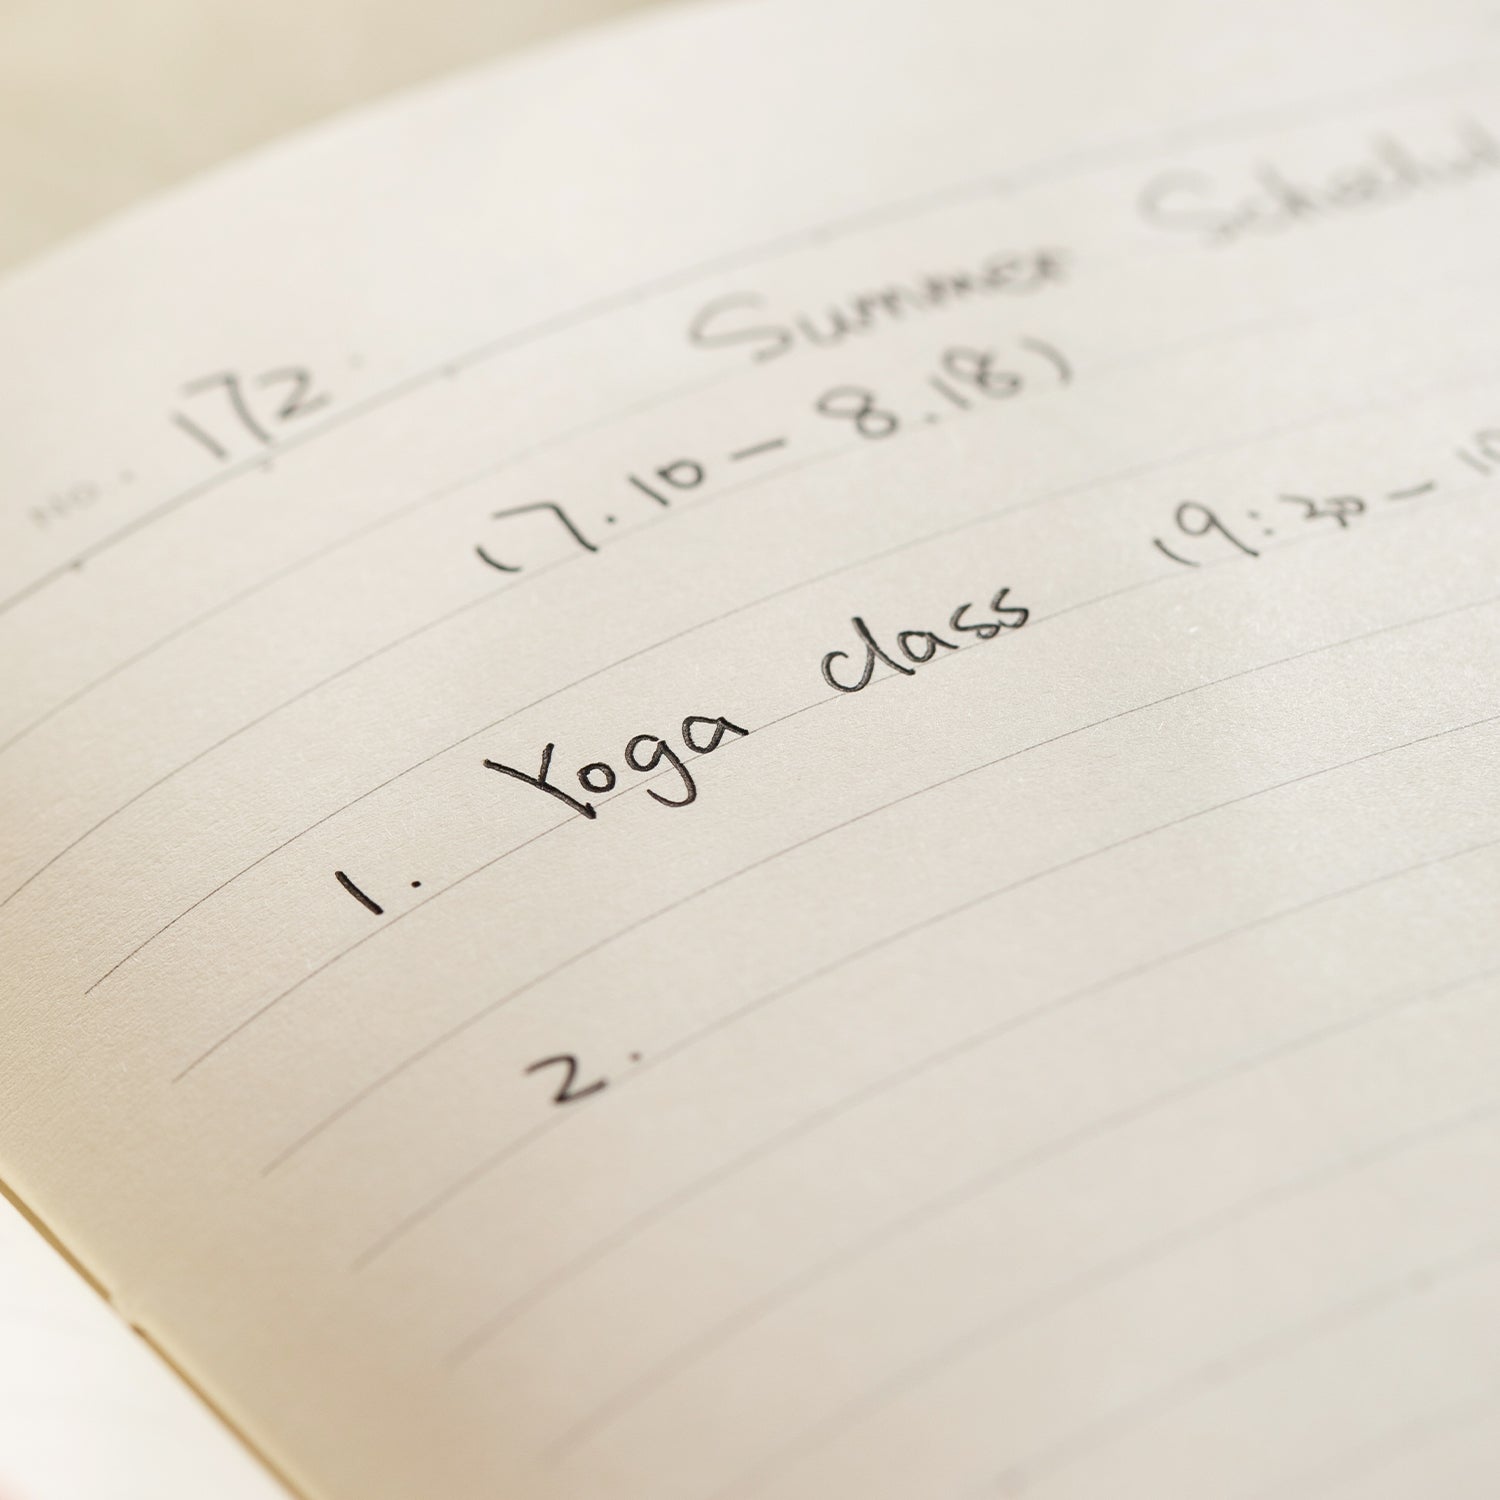 No. 172
Summer Schedul
(7.10 - 8.18)
1. Yoga class (9:30 - 10
2.